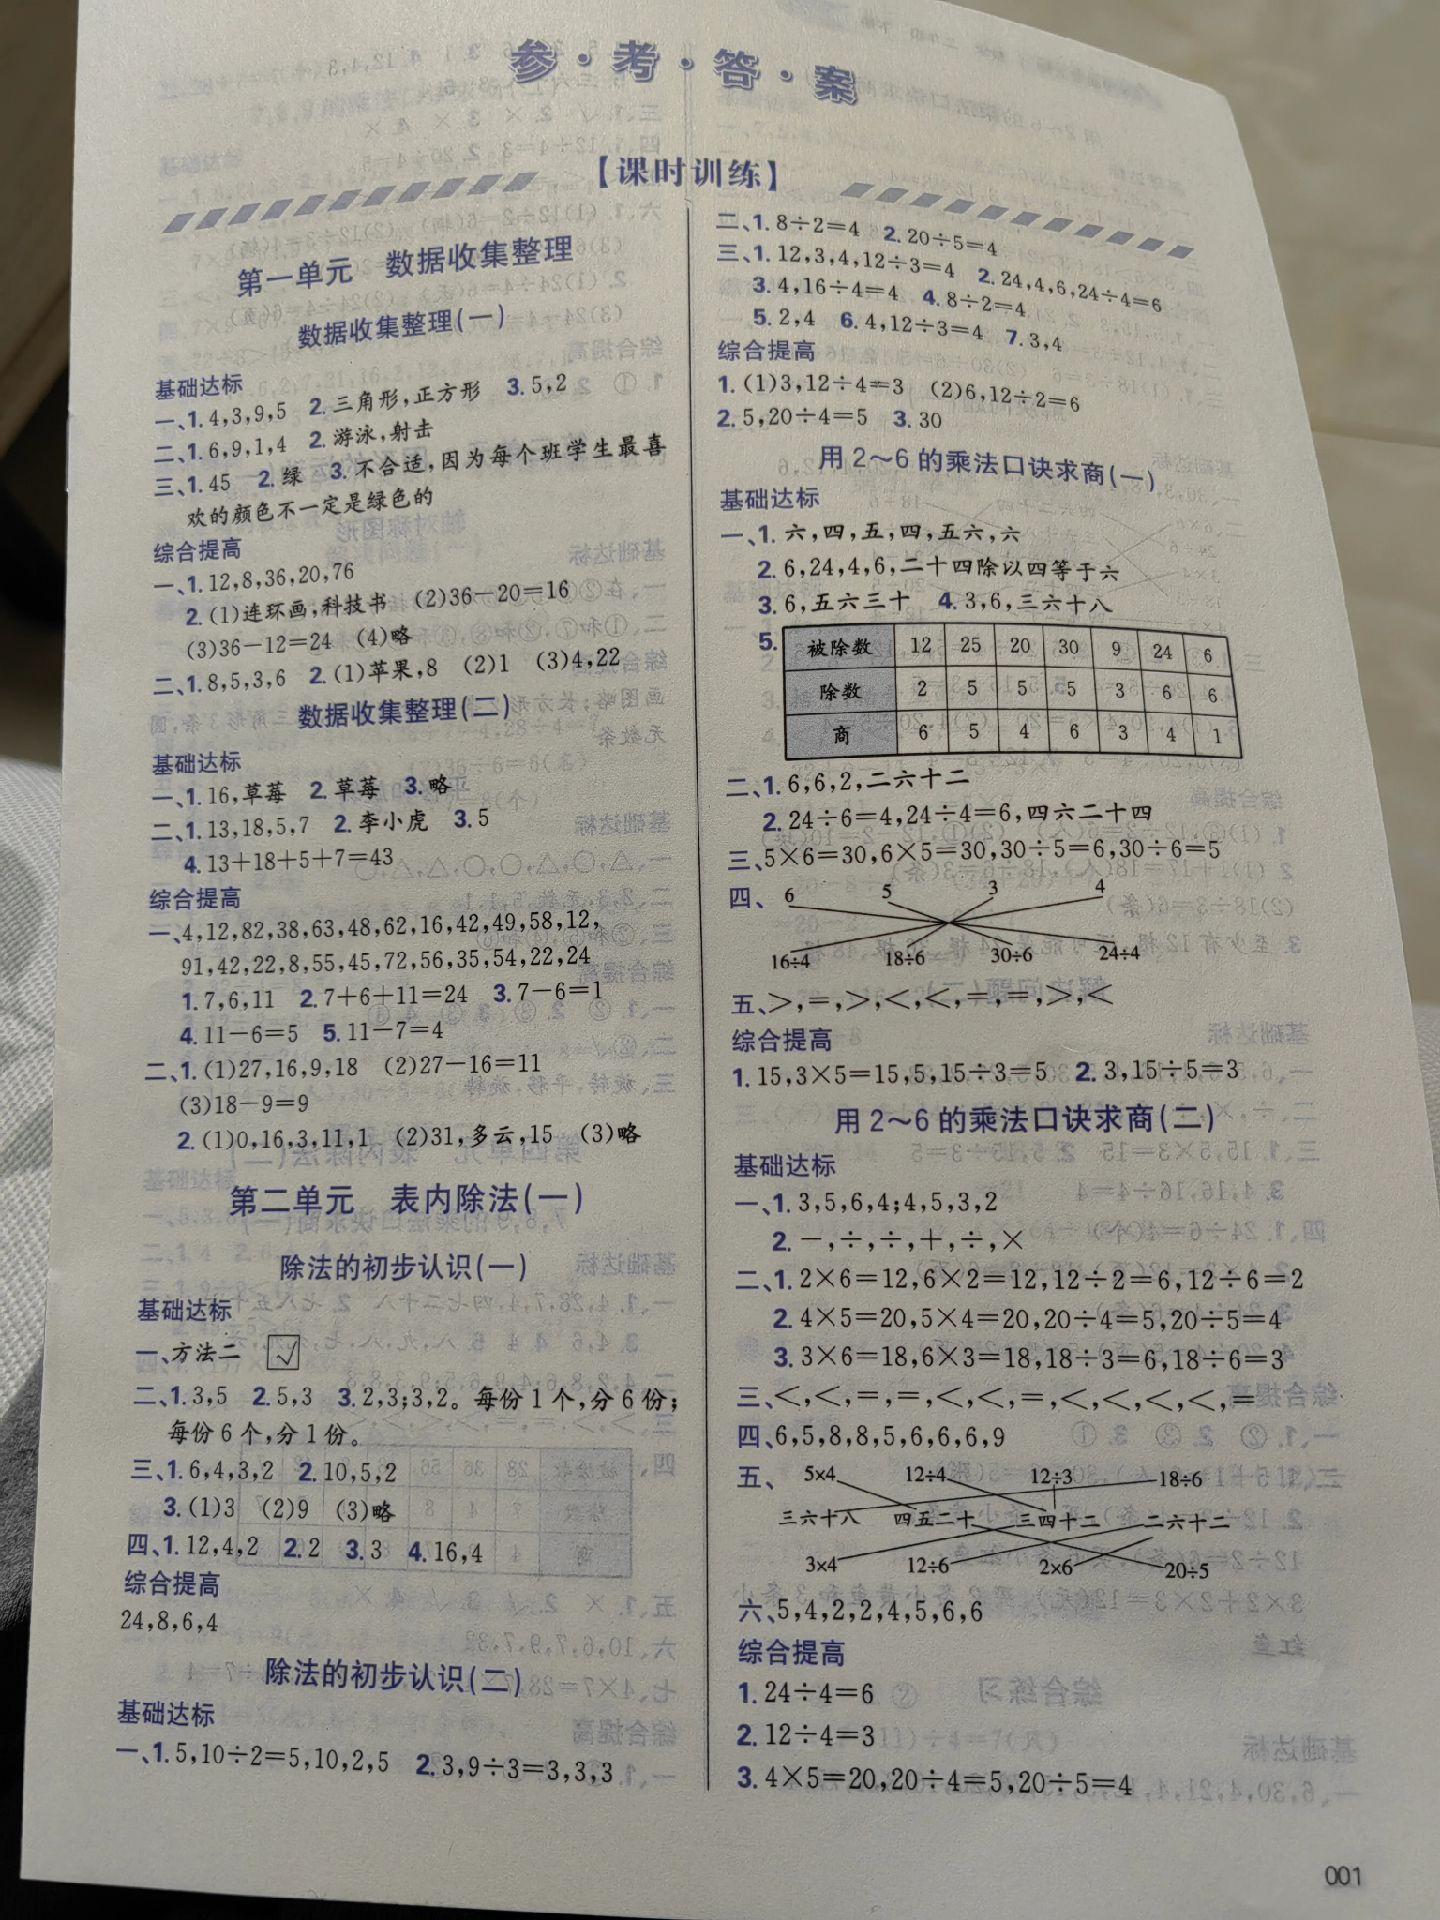 参·考·答·案
【课时训练】
第一单元 数据收集整理
数据收集整理(一)
基础达标
一、1. 4,3,9,5 2. 三角形,正方形 3. 5,2
二、1. 6,9,1,4 2. 游泳,射击
三、1. 45 2. 绿 3. 不合适,因为每个班学生最喜
欢的颜色不一定是绿色的
综合提高
一、1. 12,8,36,20,76
2. (1)连环画,科技书 (2)36-20=16
(3)36-12=24 (4)略
二、1. 8,5,3,6 2. (1)苹果,8 (2)1 (3)4,22
数据收集整理(二)
基础达标
一、1. 16,草莓 2. 草莓 3. 略
二、1. 13,18,5,7 2. 李小虎 3. 5
4. 13+18+5+7=43
综合提高
一、4,12,82,38,63,48,62,16,42,49,58,12,
91,42,22,8,55,45,72,56,35,54,22,24
1. 7,6,11 2. 7+6+11=24 3. 7-6=1
4. 11-6=5 5. 11-7=4
二、1. (1)27,16,9,18 (2)27-16=11
(3)18-9=9
2. (1)0,16,3,11,1 (2)31,多云,15 (3)略
第二单元 表内除法(一)
除法的初步认识(一)
基础达标
一、方法二 √
二、1. 3,5 2. 5,3 3. 2,3;3,2。每份1个,分6份;
每份6个,分1份。
三、1. 6,4,3,2 2. 10,5,2
3. (1)3 (2)9 (3)略
四、1. 12,4,2 2. 2 3. 3 4. 16,4
综合提高
24,8,6,4
除法的初步认识(二)
基础达标
一、1. 5,10÷2=5,10,2,5 2. 3,9÷3=3,3,3
二、1. 8÷2=4 2. 20÷5=4
三、1. 12,3,4,12÷3=4 2. 24,4,6,24÷4=6
3. 4,16÷4=4 4. 8÷2=4
5. 2,4 6. 4,12÷3=4 7. 3,4
综合提高
1. (1)3,12÷4=3 (2)6,12÷2=6
2. 5,20÷4=5 3. 30
用2~6的乘法口诀求商(一)
基础达标
一、1. 六,四,五,四,五六,六
2. 6,24,4,6,二十四除以四等于六
3. 6,五六三十 4. 3,6,三六十八
5. 被除数 12 25 20 30 9 24 6
除数 2 5 5 5 3 6 6
商 6 5 4 6 3 4 1
二、1. 6,6,2,二六十二
2. 24÷6=4,24÷4=6,四六二十四
三、5×6=30,6×5=30,30÷5=6,30÷6=5
四、 6 5 3 4
16÷4 18÷6 30÷6 24÷4
五、>,=,>,<,<,=,=,>,<
综合提高
1. 15,3×5=15,5,15÷3=5 2. 3,15÷5=3
用2~6的乘法口诀求商(二)
基础达标
一、1. 3,5,6,4;4,5,3,2
2. -,÷,÷,+,÷,×
二、1. 2×6=12,6×2=12,12÷2=6,12÷6=2
2. 4×5=20,5×4=20,20÷4=5,20÷5=4
3. 3×6=18,6×3=18,18÷3=6,18÷6=3
三、<,<,=,=,<,<,=,<,<,<,<,=
四、6,5,8,8,5,6,6,6,9
五、 5×4 12÷4 12÷3 18÷6
三六十八 四五二十 三四十二 二六十二
3×4 12÷6 2×6 20÷5
六、5,4,2,2,4,5,6,6
综合提高
1. 24÷4=6
2. 12÷4=3
3. 4×5=20,20÷4=5,20÷5=4
001